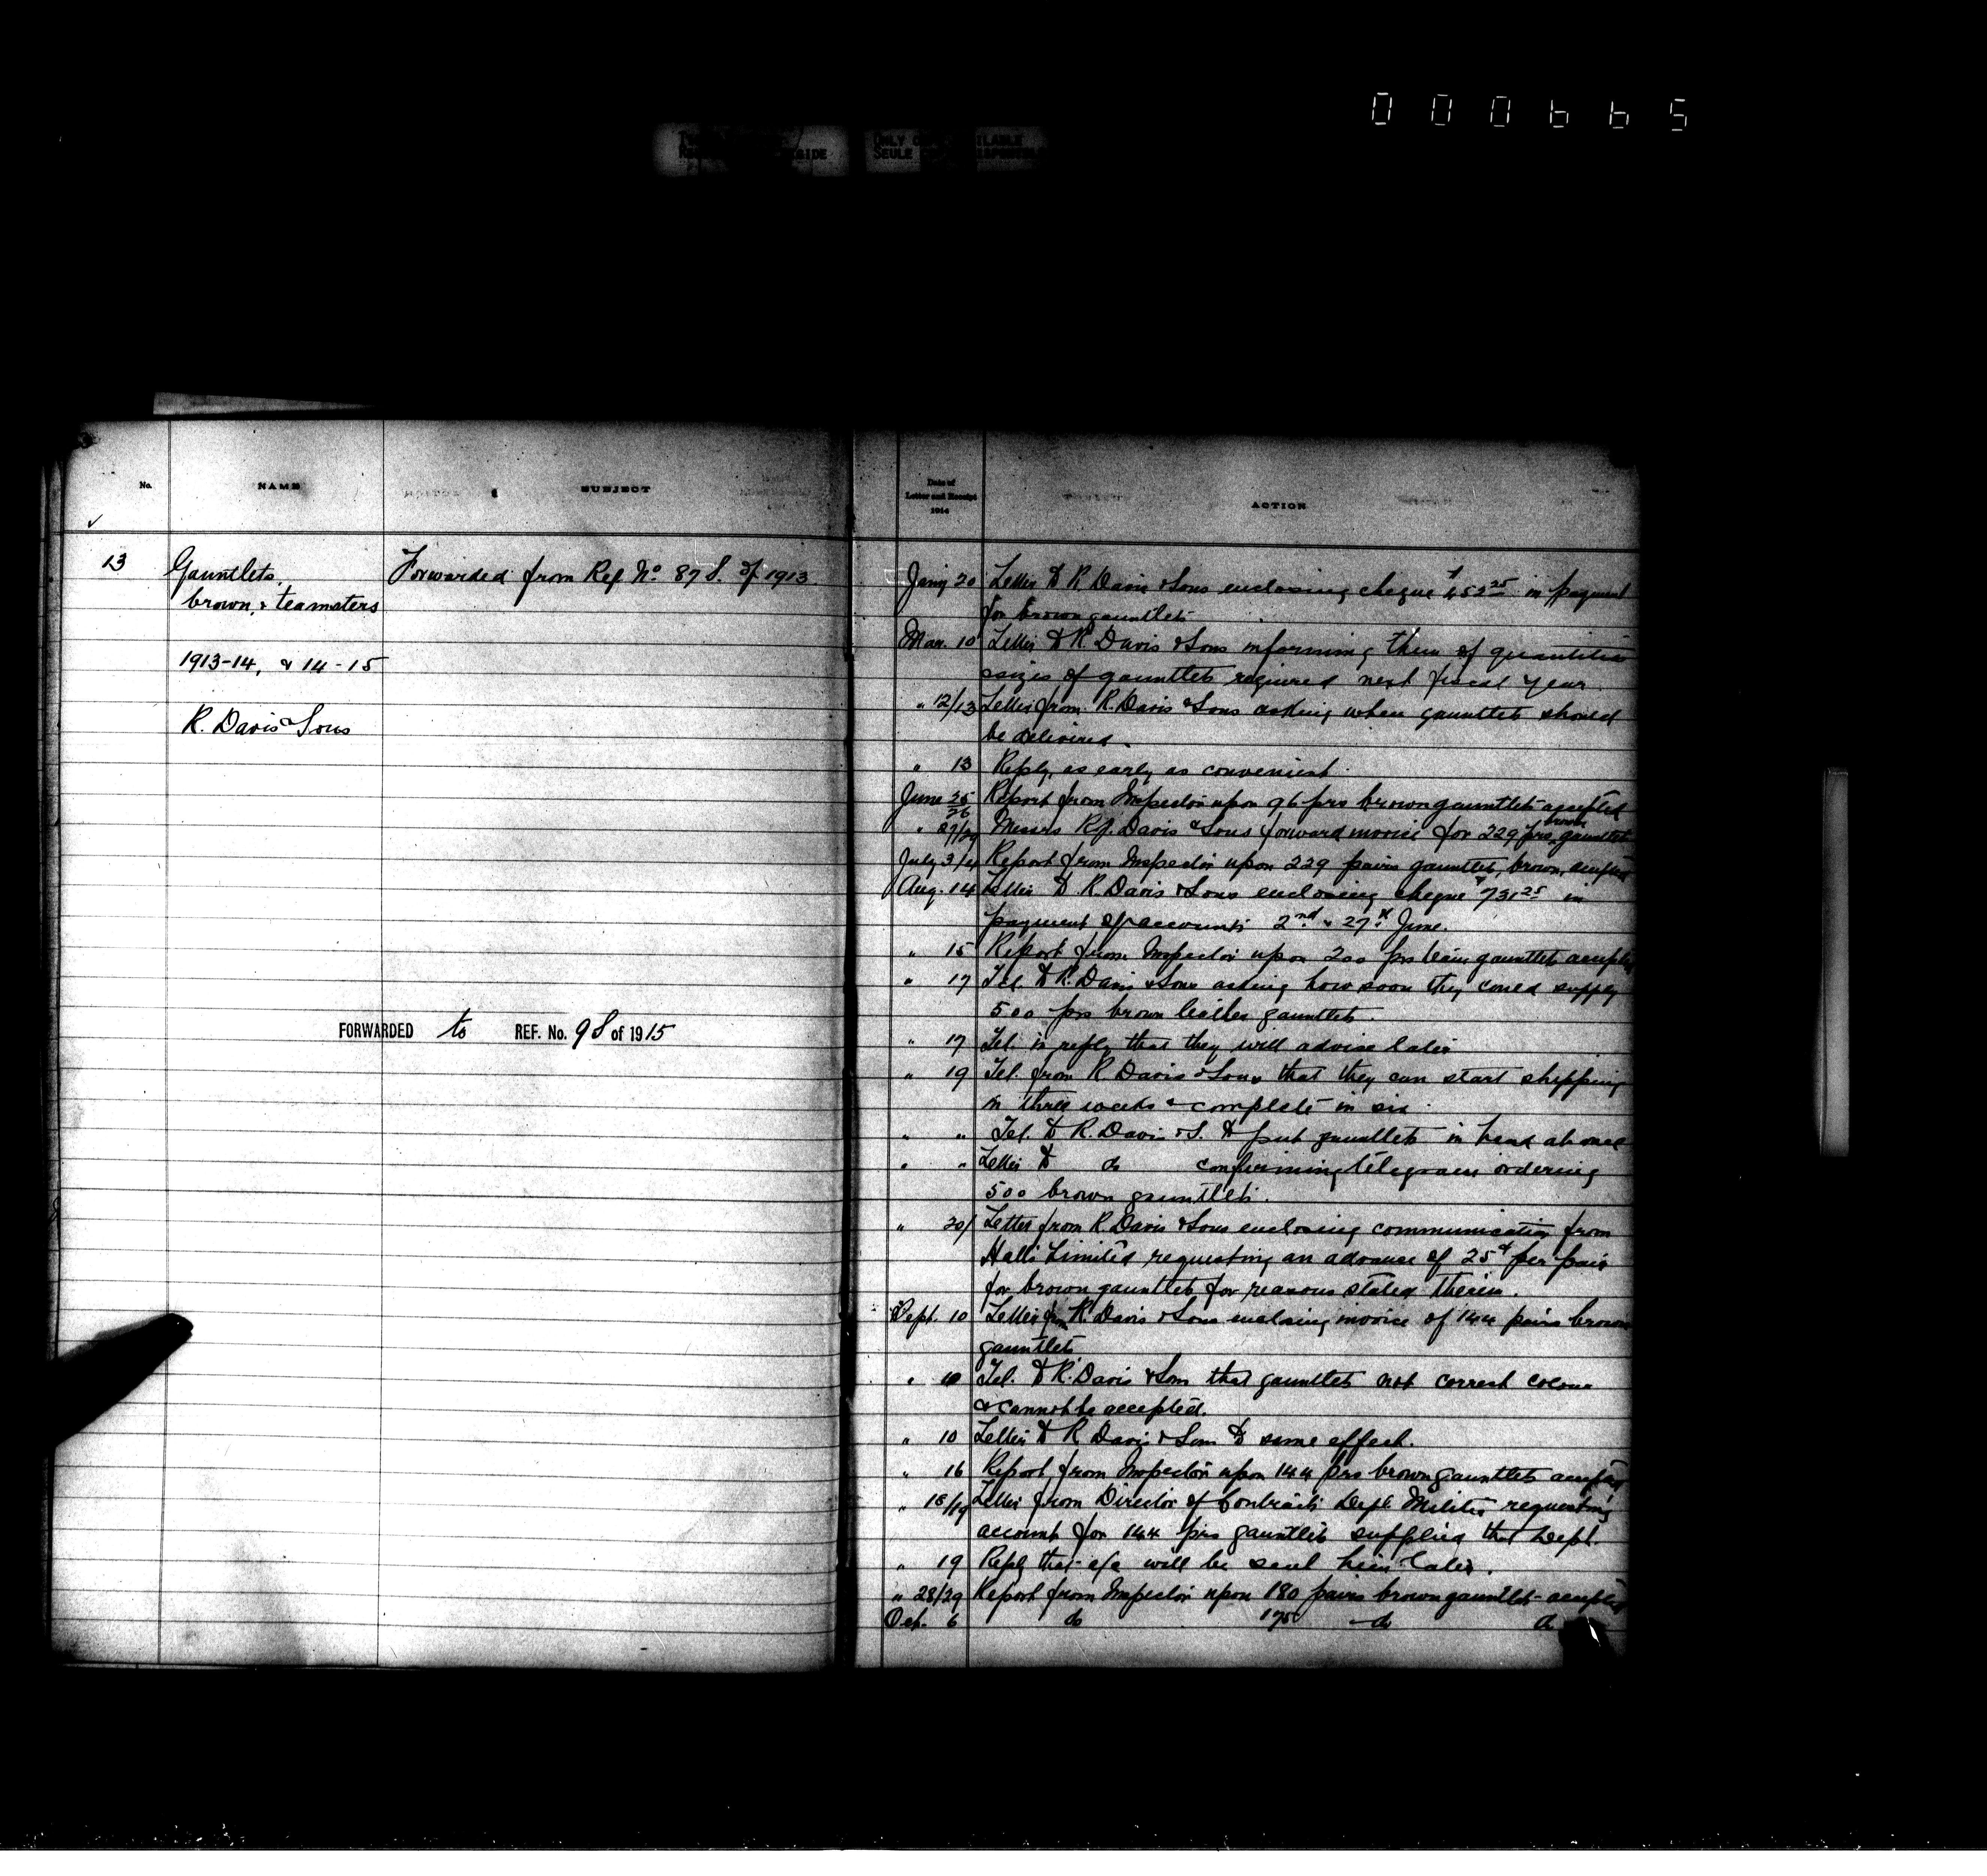 000665
ONLY
SEULE
No.
NAME
SUBJECT
Date of
Letter and Receipt
1914
ACTION
13
Gauntlets,
brown, & teamsters
1913-14, & 14-15
R. Davis & Sons
Forwarded from Ref No. 87 S. of 1913
FORWARDED to REF. No. 98 of 1915
Jany 20 Letter to R. Davis & Sons enclosing cheque $452.25 in payment
for brown gauntlets
Mar. 10 Letter to R. Davis & Sons informing them of quantities
& sizes of gauntlets required next fiscal year
" 12/13 Letter from R. Davis & Sons asking when gauntlets should
be delivered.
" 13 Reply, as early as convenient.
June 25/26 Report from Inspector upon 96 prs brown gauntlets accepted
" 27/29 Messrs R. Davis & Sons forward invoice for 229 prs brown gauntlets
July 3/4 Report from Inspector upon 229 pairs gauntlets, brown, accepted
Aug. 14 Letter to R. Davis & Sons enclosing cheque $731.25 in
payment of accounts 2nd & 27th June.
" 15 Report from Inspector upon 200 prs team gauntlets accepted
" 17 Tel. to R. Davis & Sons asking how soon they could supply
500 prs brown leather gauntlets
" 17 Tel. in reply that they will advise later
" 19 Tel. from R Davis & Sons that they can start shipping
in three weeks & complete in six.
" " Tel. to R. Davis & S. to put gauntlets in hand at once
" " Letter to do confirming telegram ordering
500 brown gauntlets.
" 20/ Letter from R. Davis & Sons enclosing communication from
Halls Limited requesting an advance of 25¢ per pair
for brown gauntlets for reasons stated therein.
Sept. 10 Letter from R. Davis & Sons enclosing invoice of 144 pairs brown
gauntlets
" 10 Tel. to R. Davis & Sons that gauntlets not correct colour
& cannot be accepted.
" 10 Letter to R Davis & Sons to same effect.
" 16 Report from Inspector upon 144 prs brown gauntlets accepted
" 18/19 Letter from Director of Contracts Dept Militia requesting
account for 144 prs gauntlets supplied that Dept.
" 19 Reply that a/c will be sent him later.
" 28/29 Report from Inspector upon 180 pairs brown gauntlets accepted
Oct. 6 do do do